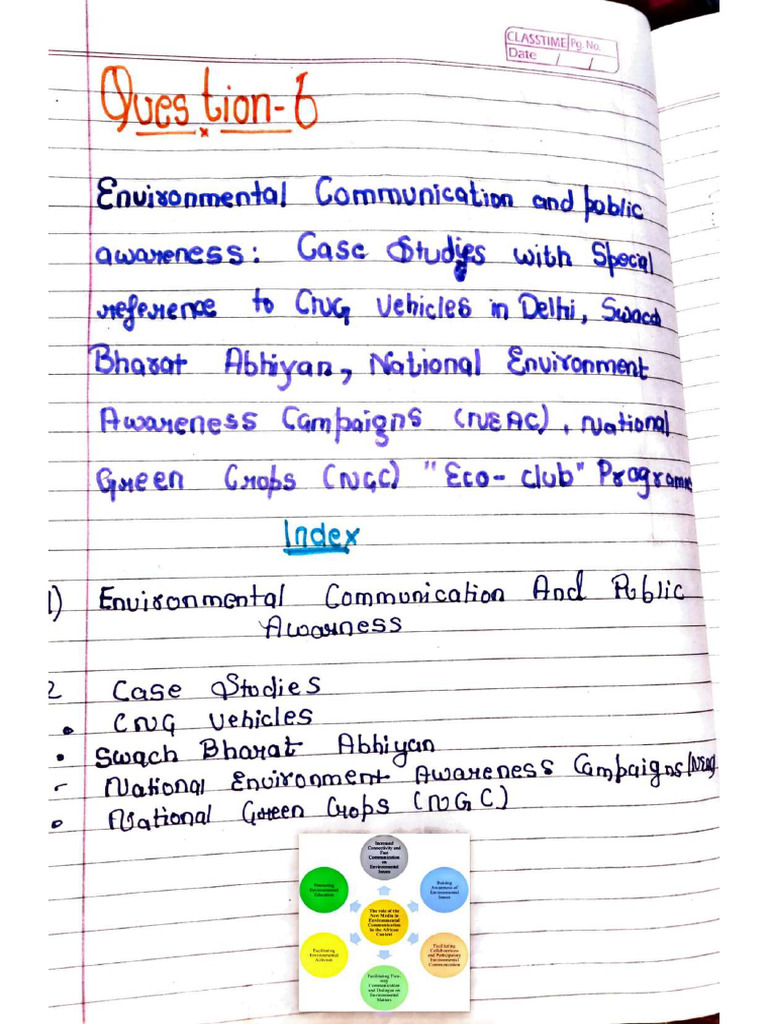 CLASSTIME Pg. No.
Date / /
Question-6
Environmental Communication and public
awareness: Case Studies with Special
reference to CNG Vehicles in Delhi, Swach
Bharat Abhiyan, National Environment
Awareness Campaigns (NEAC), National
Green Crops (NGC) "Eco-club" Programme
Index
1) Environmental Communication And Public
Awarness
2 Case Studies
• CNG Vehicles
• Swach Bharat Abhiyan
- National Environment Awareness Campaigns (NEAC)
• National Green Crops (NGC)
Increased
Connectivity and
Fast
Communication
on
Environmental
Issues
Promoting
Environmental
Education
Raising
Awareness of
Environmental
Issues
The role of the
New Media in
Environmental
Communication
in the African
Context
Facilitating
Environmental
Activism
Facilitating
Collaborations
and Participatory
Environmental
Communication
Facilitating Two-
way
Communication
and Dialogue on
Environmental
Matters